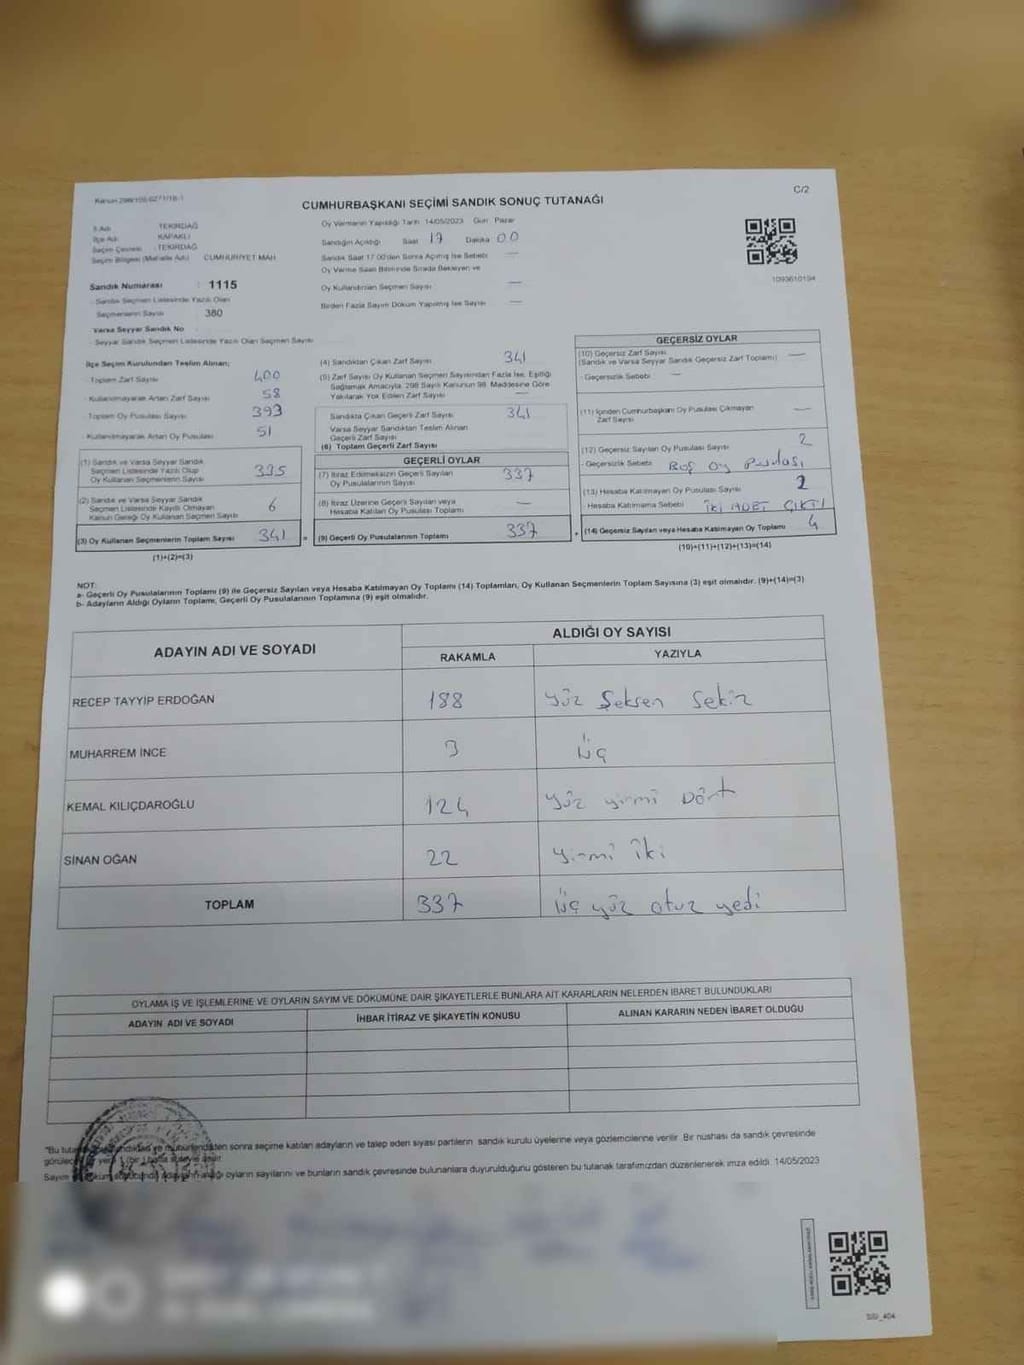 Kanun 298/105.0271/18-1
C/2
CUMHURBAŞKANI SEÇİMİ SANDIK SONUÇ TUTANAĞI
İl Adı TEKİRDAĞ
İlçe Adı KAPAKLI
Seçim Çevresi : TEKİRDAĞ
Seçim Bölgesi (Mahalle Adı) CUMHURİYET MAH.
Sandık Numarası : 1115
- Sandık Seçmen Listesinde Yazılı Olan
Seçmenlerin Sayısı 380
Varsa Seyyar Sandık No
- Seyyar Sandık Seçmen Listesinde Yazılı Olan Seçmen Sayısı
Oy Vermenin Yapıldığı Tarih 14/05/2023 Gün Pazar
Sandığın Açıldığı Saat 17 Dakika 00
Sandık Saat 17.00'den Sonra Açılmış İse Sebebi —
Oy Verme Saati Bitiminde Sırada Bekleyen ve
Oy Kullandırılan Seçmen Sayısı —
Birden Fazla Sayım Döküm Yapılmış İse Sayısı —
1093610194
İlçe Seçim Kurulundan Teslim Alınan;
- Toplam Zarf Sayısı 400
- Kullanılmayarak Artan Zarf Sayısı 58
- Toplam Oy Pusulası Sayısı 393
- Kullanılmayarak Artan Oy Pusulası 51
(1) Sandık ve Varsa Seyyar Sandık
Seçmen Listesinde Yazılı Olup
Oy Kullanan Seçmenlerin Sayısı 335
(2) Sandık ve Varsa Seyyar Sandık
Seçmen Listesinde Kayıtlı Olmayan
Kanun Gereği Oy Kullanan Seçmen Sayısı 6
(3) Oy Kullanan Seçmenlerin Toplam Sayısı 341 =
(1)+(2)=(3)
(4) Sandıktan Çıkan Zarf Sayısı 341
(5) Zarf Sayısı Oy Kullanan Seçmen Sayısından Fazla İse, Eşitliği
Sağlamak Amacıyla, 298 Sayılı Kanunun 98. Maddesine Göre
Yakılarak Yok Edilen Zarf Sayısı —
Sandıkta Çıkan Geçerli Zarf Sayısı 341
Varsa Seyyar Sandıktan Teslim Alınan
Geçerli Zarf Sayısı
(6) Toplam Geçerli Zarf Sayısı
GEÇERLİ OYLAR
(7) İtiraz Edilmeksizin Geçerli Sayılan
Oy Pusulalarının Sayısı 337
(8) İtiraz Üzerine Geçerli Sayılan veya
Hesaba Katılan Oy Pusulası Toplamı —
(9) Geçerli Oy Pusulalarının Toplamı 337 +
GEÇERSİZ OYLAR
(10) Geçersiz Zarf Sayısı
(Sandık ve Varsa Seyyar Sandık Geçersiz Zarf Toplamı) —
- Geçersizlik Sebebi —
(11) İçinden Cumhurbaşkanı Oy Pusulası Çıkmayan
Zarf Sayısı —
(12) Geçersiz Sayılan Oy Pusulası Sayısı 2
- Geçersizlik Sebebi Boş Oy Pusulası
(13) Hesaba Katılmayan Oy Pusulası Sayısı 2
Hesaba Katılmama Sebebi İKİ ADET ÇIKTI
(14) Geçersiz Sayılan veya Hesaba Katılmayan Oy Toplamı 4
(10)+(11)+(12)+(13)=(14)
NOT:
a- Geçerli Oy Pusulalarının Toplamı (9) ile Geçersiz Sayılan veya Hesaba Katılmayan Oy Toplamı (14) Toplamları, Oy Kullanan Seçmenlerin Toplam Sayısına (3) eşit olmalıdır. (9)+(14)=(3)
b- Adayların Aldığı Oyların Toplamı, Geçerli Oy Pusulalarının Toplamına (9) eşit olmalıdır.
ADAYIN ADI VE SOYADI
ALDIĞI OY SAYISI
RAKAMLA YAZIYLA
RECEP TAYYİP ERDOĞAN 188 yüz Seksen Sekiz
MUHARREM İNCE 3 üç
KEMAL KILIÇDAROĞLU 124 yüz yirmi Dört
SİNAN OĞAN 22 yirmi iki
TOPLAM 337 üç yüz otuz yedi
OYLAMA İŞ VE İŞLEMLERİNE VE OYLARIN SAYIM VE DÖKÜMÜNE DAİR ŞİKAYETLERLE BUNLARA AİT KARARLARIN NELERDEN İBARET BULUNDUKLARI
ADAYIN ADI VE SOYADI İHBAR İTİRAZ VE ŞİKAYETİN KONUSU ALINAN KARARIN NEDEN İBARET OLDUĞU
sonra seçime katılan adayların ve talep eden siyasi partilerin sandık kurulu üyelerine veya gözlemcilerine verilir. Bir nüshası da sandık çevresinde
oyların sayılarını ve bunların sandık çevresinde bulunanlara duyurulduğunu gösteren bu tutanak tarafımızdan düzenlenerek imza edildi. 14/05/2023